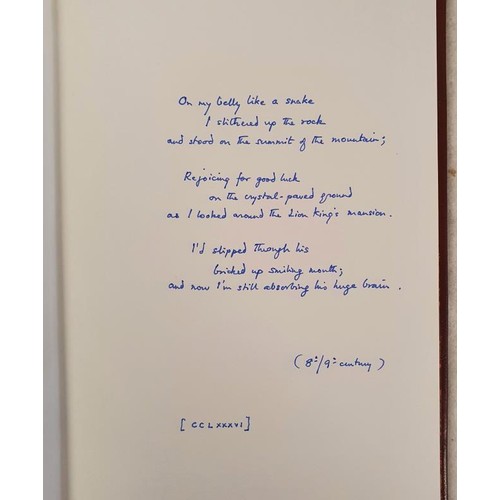 On my belly like a snake
I slithered up the rock
and stood on the summit of the mountain;
Rejoicing for good luck
on the crystal-paved ground
as I looked around the Lion King's mansion.
I'd slipped through his
bricked up smiling mouth;
and now I'm still absorbing his huge brain.
(8th/9th century)
[CCLXXXVI]